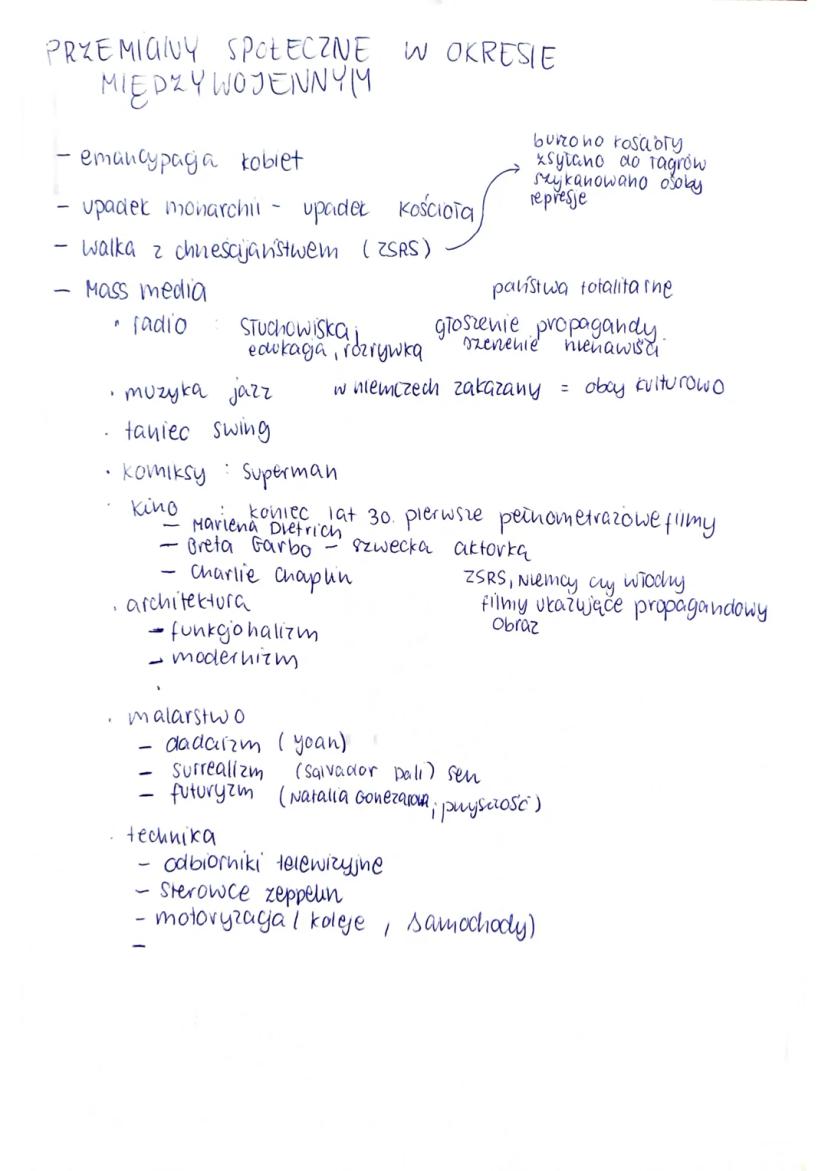 PRZEMIANY SPOŁECZNE W OKRESIE
MIĘDZYWOJENNYM
- emancypacja kobiet
- upadek monarchii - upadek Kościoła
- walka z chrześcijaństwem (ZSRS)
burzono kościoły
zsyłano do łagrów
szykanowano osoby
represje
- Mass media
państwa totalitarne
• radio : słuchowiska, głoszenie propagandy
edukacja, rozrywka szerzenie nienawiści
• muzyka jazz w niemczech zakazany = obcy kulturowo
• taniec swing
• komiksy : Superman
• kino : koniec lat 30. pierwsze pełnometrażowe filmy
- Marlena Dietrich
- Greta Garbo - szwecka aktorka
- Charlie Chaplin
ZSRS, Niemcy czy Włochy
filmy ukazujące propagandowy
obraz
• architektura
- funkcjonalizm
- modernizm
• malarstwo
- dadaizm (yoan)
- surrealizm (Salvador Dali) sen
- futuryzm (Natalia Gonczarowa, przyszłość)
• technika
- odbiorniki telewizyjne
- sterowce zeppelin
- motoryzacja ( koleje , samochody)
-